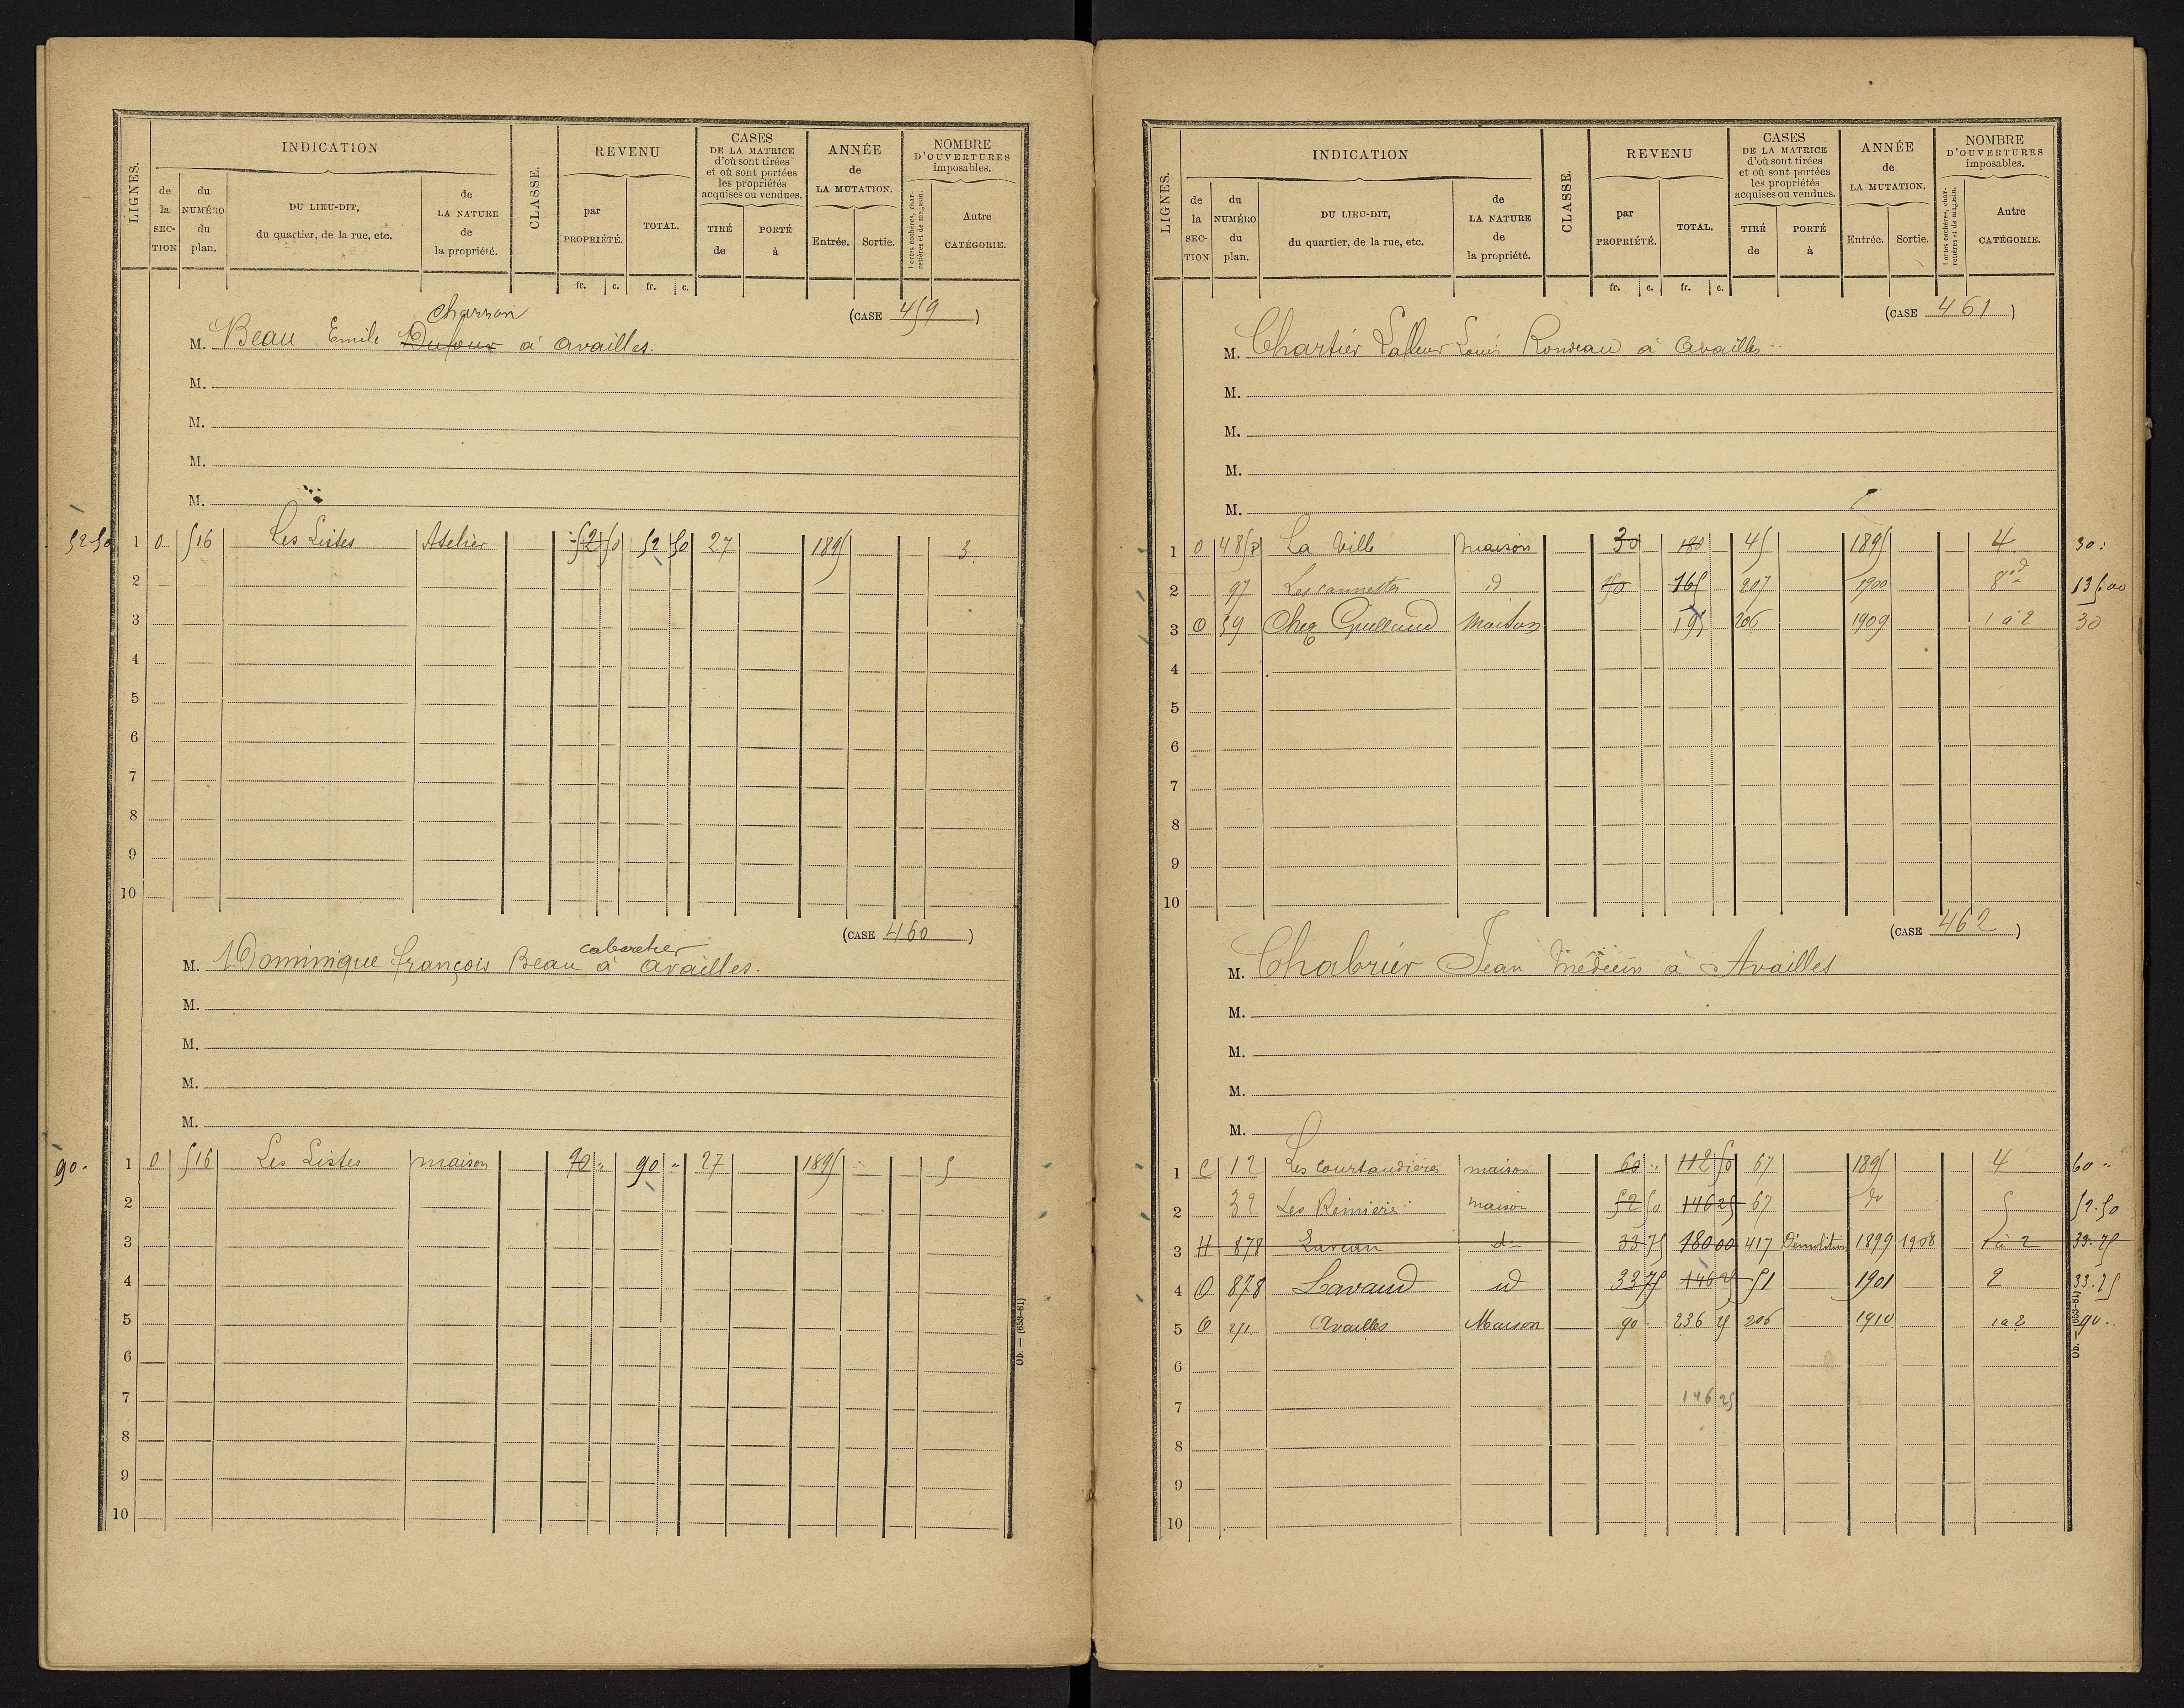 LIGNES.
INDICATION
de la SECTION
du NUMÉRO du plan.
DU LIEU-DIT, du quartier, de la rue, etc.
de LA NATURE de la propriété.
CLASSE.
REVENU
par PROPRIÉTÉ.
TOTAL.
CASES DE LA MATRICE d'où sont tirées et où sont portées les propriétés acquises ou vendues.
TIRÉ de
PORTÉ à
ANNÉE de LA MUTATION.
Entrée. Sortie.
NOMBRE D'OUVERTURES imposables.
Portes cochères, charretières et de magasin.
Autre CATÉGORIE.
fr. c. fr. c.
(CASE 459)
charron
M. Beau Emile Dufour à Availles.
M.
M.
M.
M.
52.50 1 O 516 Les Listes Atelier 52 50 52 50 27 1895 3.
2
3
4
5
6
7
8
9
10
(CASE 460)
cabaretier
M. Dominique françois Beau à Availles.
M.
M.
M.
M.
90. 1 O 516 Les Listes maison 90 " 90 " 27 1895 5
2
3
4
5
6
7
8
9
10
Ob. — (653-81)
LIGNES.
INDICATION
de la SECTION
du NUMÉRO du plan.
DU LIEU-DIT, du quartier, de la rue, etc.
de LA NATURE de la propriété.
CLASSE.
REVENU
par PROPRIÉTÉ.
TOTAL.
CASES DE LA MATRICE d'où sont tirées et où sont portées les propriétés acquises ou vendues.
TIRÉ de
PORTÉ à
ANNÉE de LA MUTATION.
Entrée. Sortie.
NOMBRE D'OUVERTURES imposables.
Portes cochères, charretières et de magasin.
Autre CATÉGORIE.
fr. c. fr. c.
(CASE 461)
M. Chartier Lafleur Louis Rondeau à Availles
M.
M.
M.
M.
1 O 485 La Ville maison 30 180 45 1895 4 30
2 97 d 165 207 1900 8 135.00
3 O 59 Chez Guillaud Maison 195 206 1909 1 à 2 30
4
5
6
7
8
9
10
(CASE 462)
M. Chabrier Jean Médecin à Availles
M.
M.
M.
M.
1 C 12 Les Courtaudières maison 60 " 112 50 67 1895 4 60 "
2 32 maison 52 50 146 25 67 do 5 52.50
3 H 878 d° 33 75 180 00 417 Démolition 1899 1908 1 à 2 33.75
4 O 878 Lavaud id 33 75 146 25 51 1901 2 33.75
5 O 271 Availles Maison 90 236 25 206 1910 1 à 2 90.
6
7 146 25
8
9
10
Ob. — (653-81)